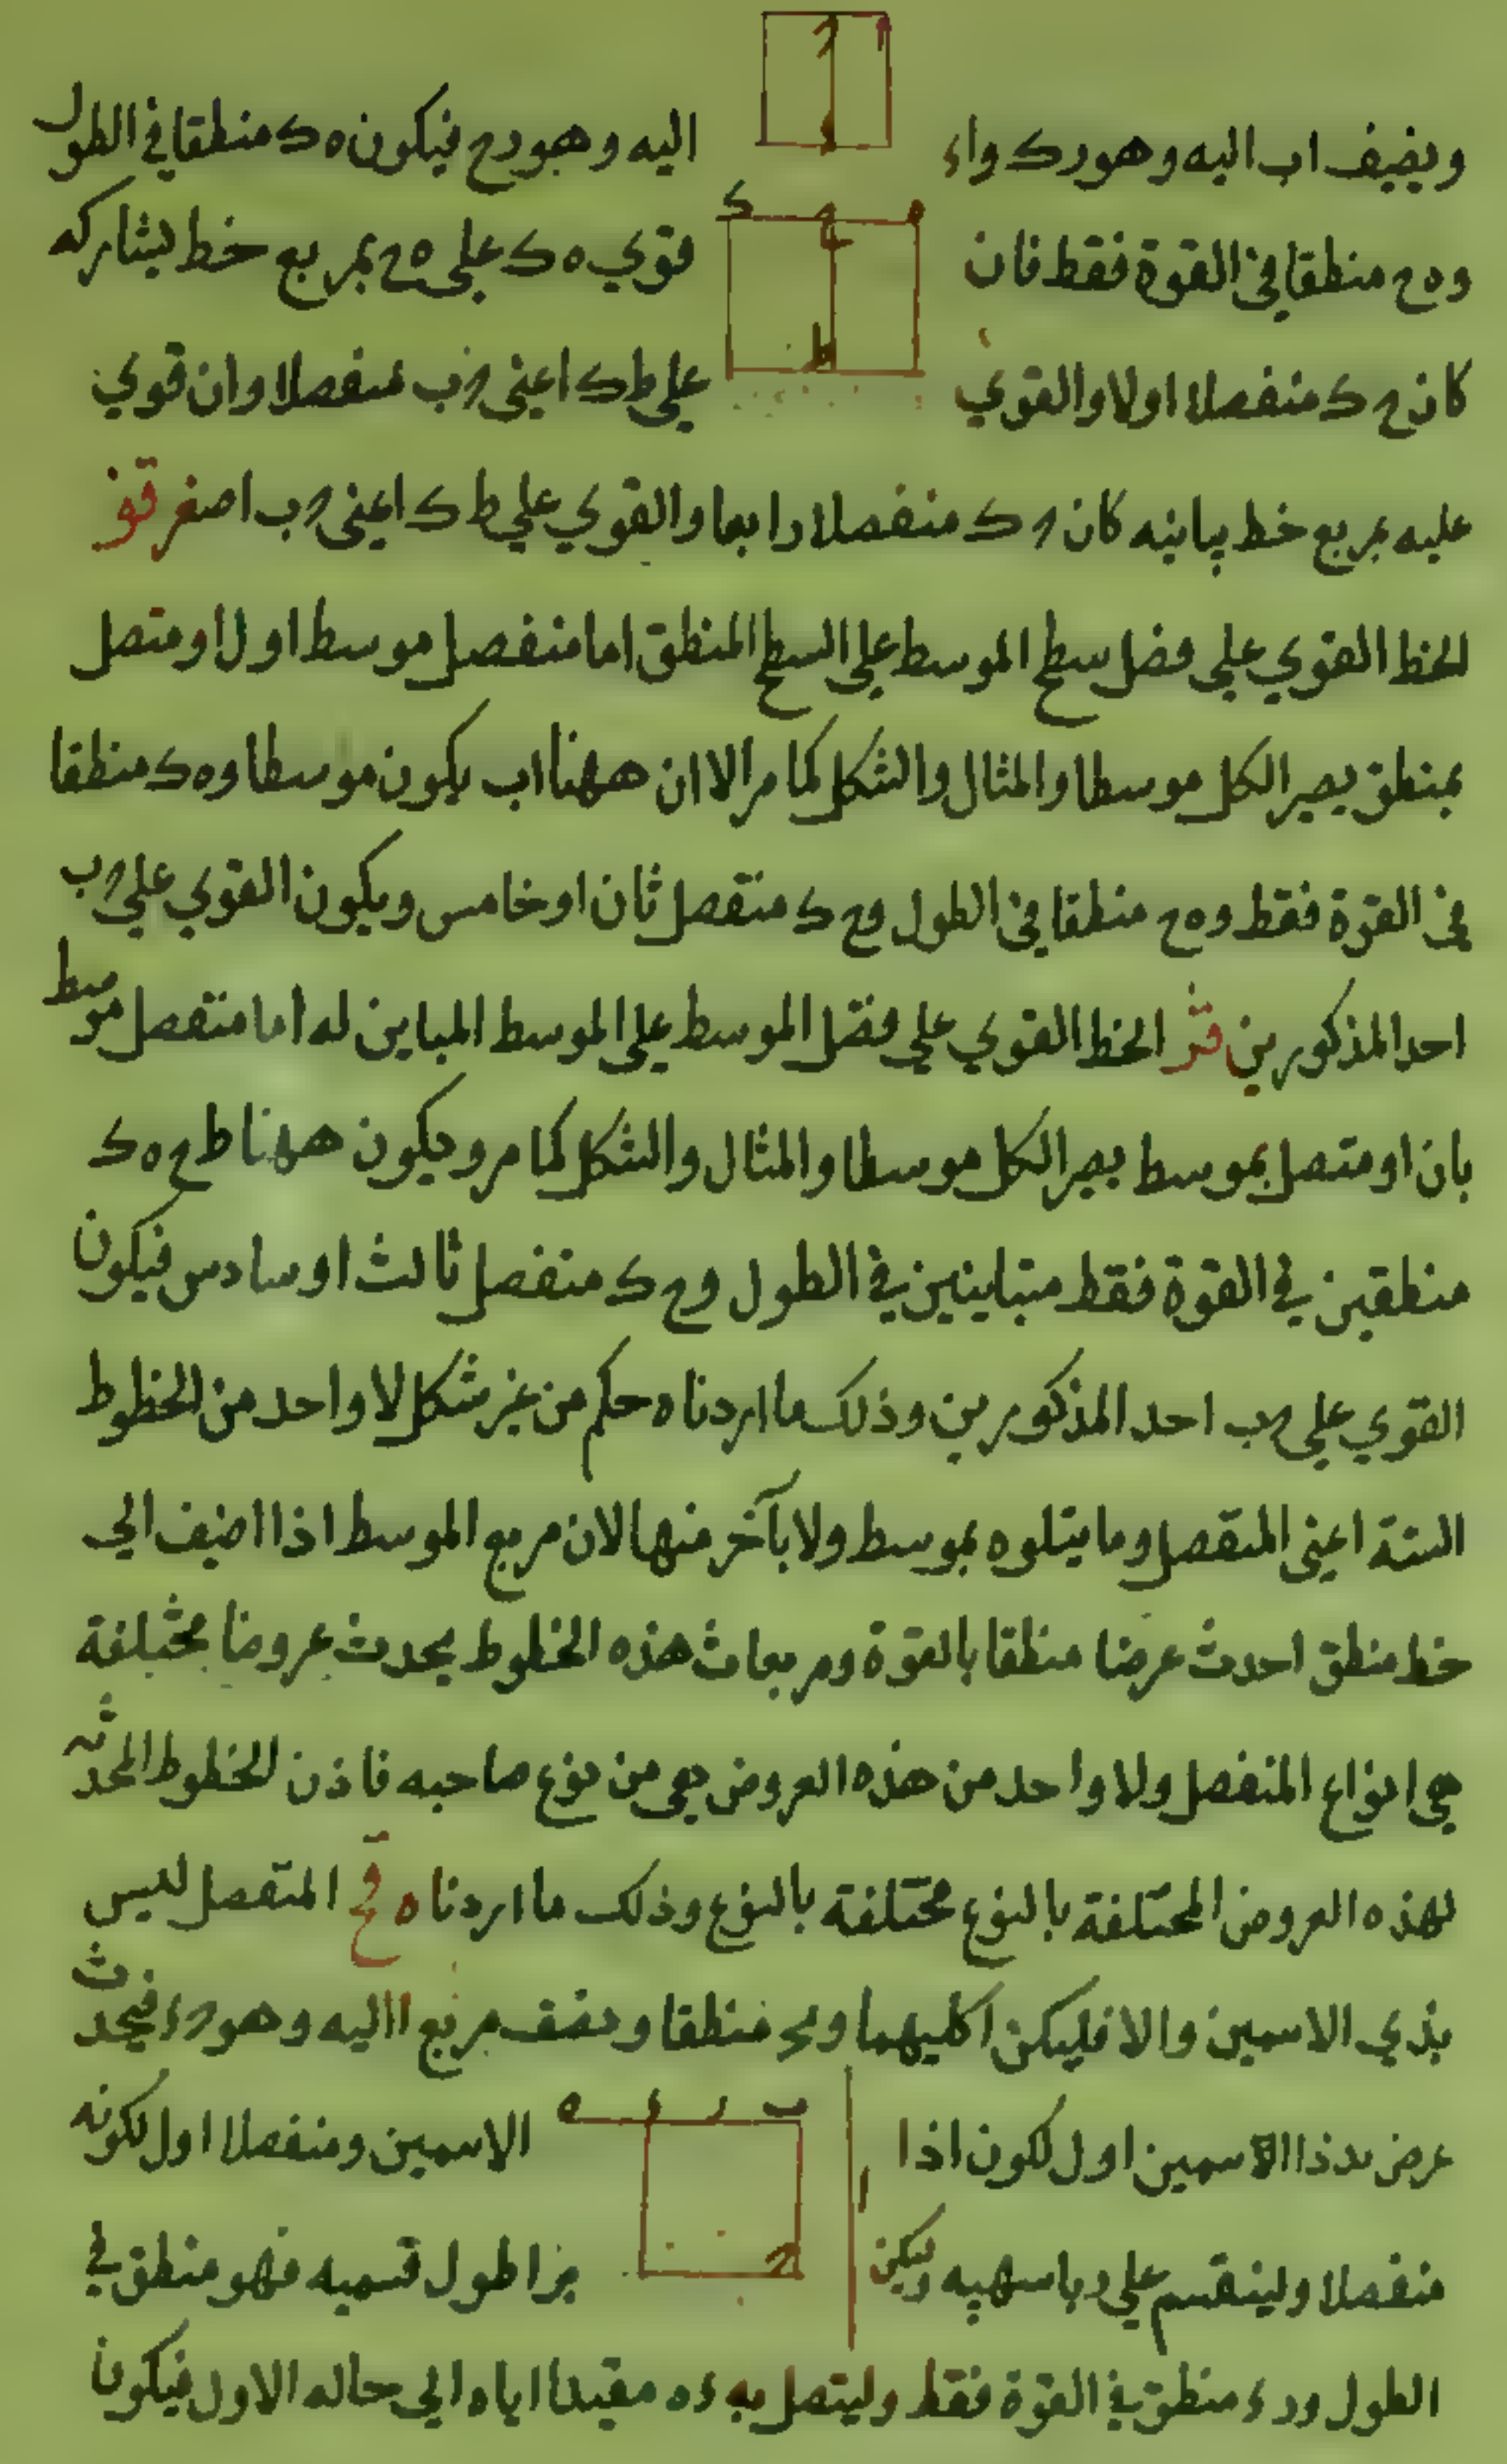 ويضيف اب اليه وهو رك واء اليه وهو رح فيكون ه ك منطقا في الطول
وه ح منطقا في القوة فقط فان قوي ه ك على ه ح بمربع خط يشاركه
كان ح ك منفصلا اولا والقوي على ط ك اعني ح ب منفصلا وان قوي
عليه بمربع خط يباينه كان ح ك منفصلا رابعا والقوي على ط ك اعني ح ب اصغر قو
الخط القوي على فضل سطح الموسط على السطح المنطق اما منفصل موسط اول او متصل
بمنطق يصير الكل موسطا والمثال والشكل كما مر الا ان ههنا اب يكون موسطا وه ك منطقا
في القوة فقط وه ح منطقا في الطول وح ك منفصل ثان او خامس ويكون القوي على ح ب
احد المذكورين قز الخط القوي على فضل الموسط على الموسط المباين له اما منفصل موسط
بان او متصل بموسط يصير الكل موسطا والمثال والشكل كما مر ويكون ههنا ط ح ه ك
منطقين في القوة فقط متباينين في الطول وح ك منفصل ثالث او سادس فيكون
القوي على ح ب احد المذكورين وذلك ما اردناه حكم من غير شكل لا واحد من الخطوط
الستة اعني المنفصل وما يتلوه بموسط ولا بآخر منها لان مربع الموسط اذا اضيف الى
خط منطق احدث عرضا منطقا بالقوة ومربعات هذه الخطوط يحدث عروضا مختلفة
هي انواع المنفصل ولا واحد من هذه العروض هي من نوع صاحبه فاذن الخطوط المحدثه
لهذه العروض المختلفة بالنوع مختلفة بالنوع وذلك ما اردناه قح المنفصل ليس
بذي الاسمين والا فليكن ا كليهما و منطقا ونضف مربع ا اليه وهو ح ء فيحدث
عرض ب ء ذا الاسمين اول لكون ا ذا الاسمين ومنفصلا اول لكونه
منفصلا ولينقسم على ر باسميه وليكن بر اطول قسميه فهو منطق في
الطول ور ء منطق في القوة فقط وليتصل به ء ه مقيدا اياه الى حاله الاول فيكون